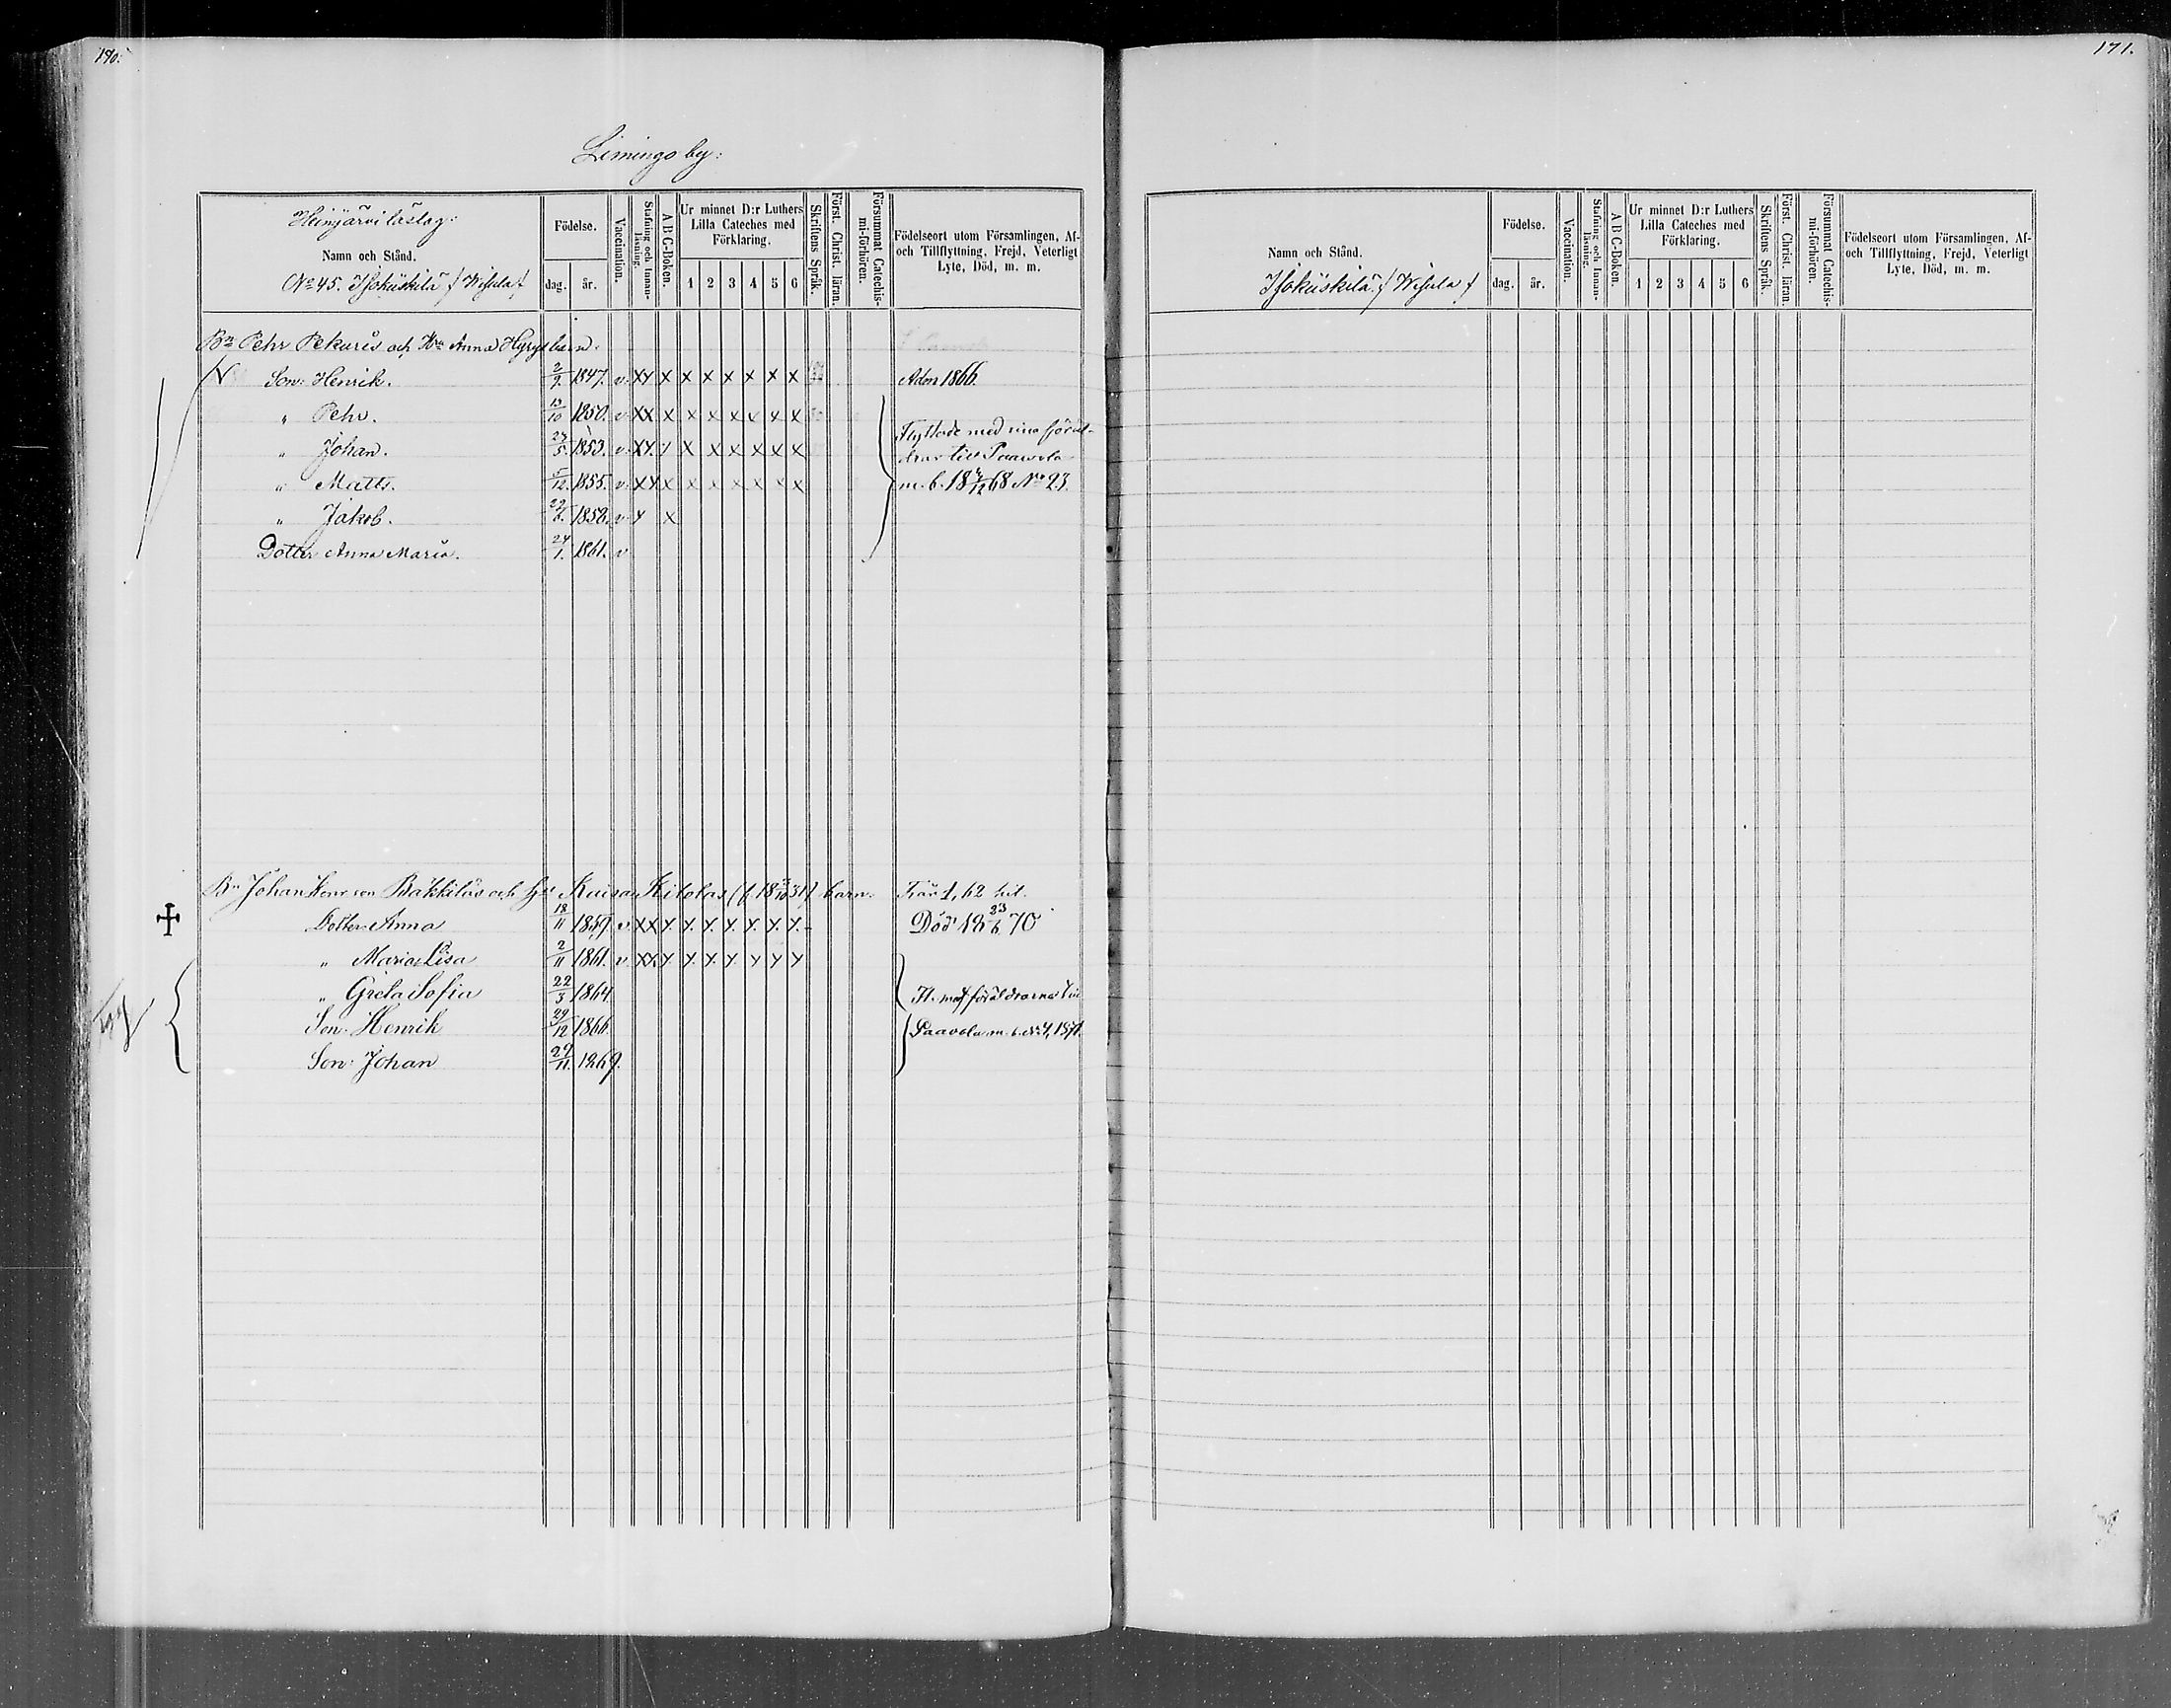 170.
Limingo by:
Heinijärvi läslag:
Namn och Stånd.
No 45. Isokiiskilä / Wisula /
Födelse.
dag. år.
Vaccination.
Stafning och Innanläsning.
A B C-Boken.
Ur minnet D:r Luthers
Lilla Cateches med
Förklaring.
1 2 3 4 5 6
Skriftens Språk.
Först. Christ. läran.
Försummat Catechismi-förhören.
Födelseort utom Församlingen, Af-
och Tillflyttning, Frejd, Veterligt
Lyte, Död, m. m.
Bn Pehr Pekuris och Hu Anna Hyrys barn.
Son: Henrik. 2/9 1847. v. XX X X X X X X X Adm 1866.
" Pehr. 13/10 1850. v. XX X X X X X X X
" Johan. 27/5 1853. v. XX X X X X X X Flyttade med sina föräl-
drar till Paavola
" Matts. 5/12 1855. v. XX X X X X X X X m. b. 18 /12 68 No 23.
" Jakob. 1858. v. X X
Dotter Anna Maria. 24/1. 1861. v
Bn Johan Henr. son och Hu Kaisa barn. Från 1, 62 hit.
Dotter Anna 18/11 1859. v. XX X X X X X X X Död 18 23/6 70
" Maria Lisa 2/11 1861. v. XX X X X X X X X
" Greta Sofia 22/3 1864. Fl. med föräldrarne till
Son: Henrik 29/12 1866. Paavola m. b. No 4, 1871.
Son: Johan 29/11. 1869.
171.
Namn och Stånd.
Isokiiskilä / Wisula /
Födelse.
dag. år.
Vaccination.
Stafning och Innanläsning.
A B C-Boken.
Ur minnet D:r Luthers
Lilla Cateches med
Förklaring.
1 2 3 4 5 6
Skriftens Språk.
Först. Christ. läran.
Försummat Catechismi-förhören.
Födelseort utom Församlingen, Af-
och Tillflyttning, Frejd, Veterligt
Lyte, Död, m. m.